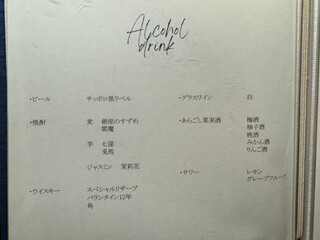 Alcohol
drink
・ビール サッポロ黒ラベル
・焼酎 麦 銀座のすずめ
閻魔
芋 七窪
兎馬
ジャスミン 茉莉花
・ウイスキー スペシャルリザーブ
バランタイン12年
角
・グラスワイン 白
・あらごし果実酒 梅酒
柚子酒
桃酒
みかん酒
りんご酒
・サワー レモン
グレープフルーツ